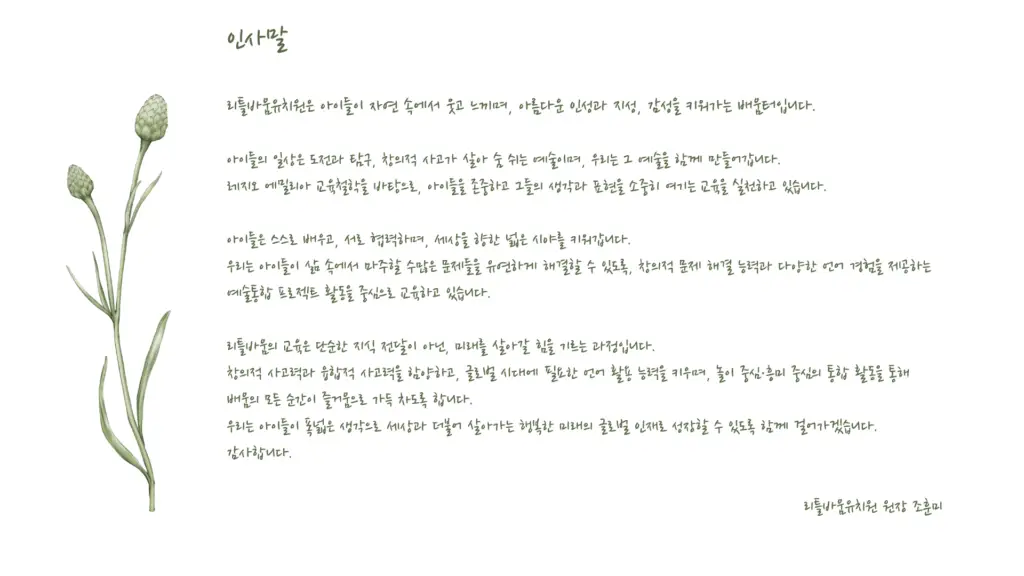 인사말
리틀바움유치원은 아이들이 자연 속에서 웃고 느끼며, 아름다운 인성과 지성, 감성을 키워가는 배움터입니다.
아이들의 일상은 도전과 탐구, 창의적 사고가 살아 숨 쉬는 예술이며, 우리는 그 예술을 함께 만들어갑니다.
레지오 에밀리아 교육철학을 바탕으로, 아이들을 존중하고 그들의 생각과 표현을 소중히 여기는 교육을 실천하고 있습니다.
아이들은 스스로 배우고, 서로 협력하며, 세상을 향한 넓은 시야를 키워갑니다.
우리는 아이들이 삶 속에서 마주할 수많은 문제들을 유연하게 해결할 수 있도록, 창의적 문제 해결 능력과 다양한 언어 경험을 제공하는
예술통합 프로젝트 활동을 중심으로 교육하고 있습니다.
리틀바움의 교육은 단순한 지식 전달이 아닌, 미래를 살아갈 힘을 기르는 과정입니다.
창의적 사고력과 융합적 사고력을 함양하고, 글로벌 시대에 필요한 언어 활용 능력을 키우며, 놀이 중심·흥미 중심의 통합 활동을 통해
배움의 모든 순간이 즐거움으로 가득 차도록 합니다.
우리는 아이들이 폭넓은 생각으로 세상과 더불어 살아가는 행복한 미래의 글로벌 인재로 성장할 수 있도록 함께 걸어가겠습니다.
감사합니다.
리틀바움유치원 원장 조훈미